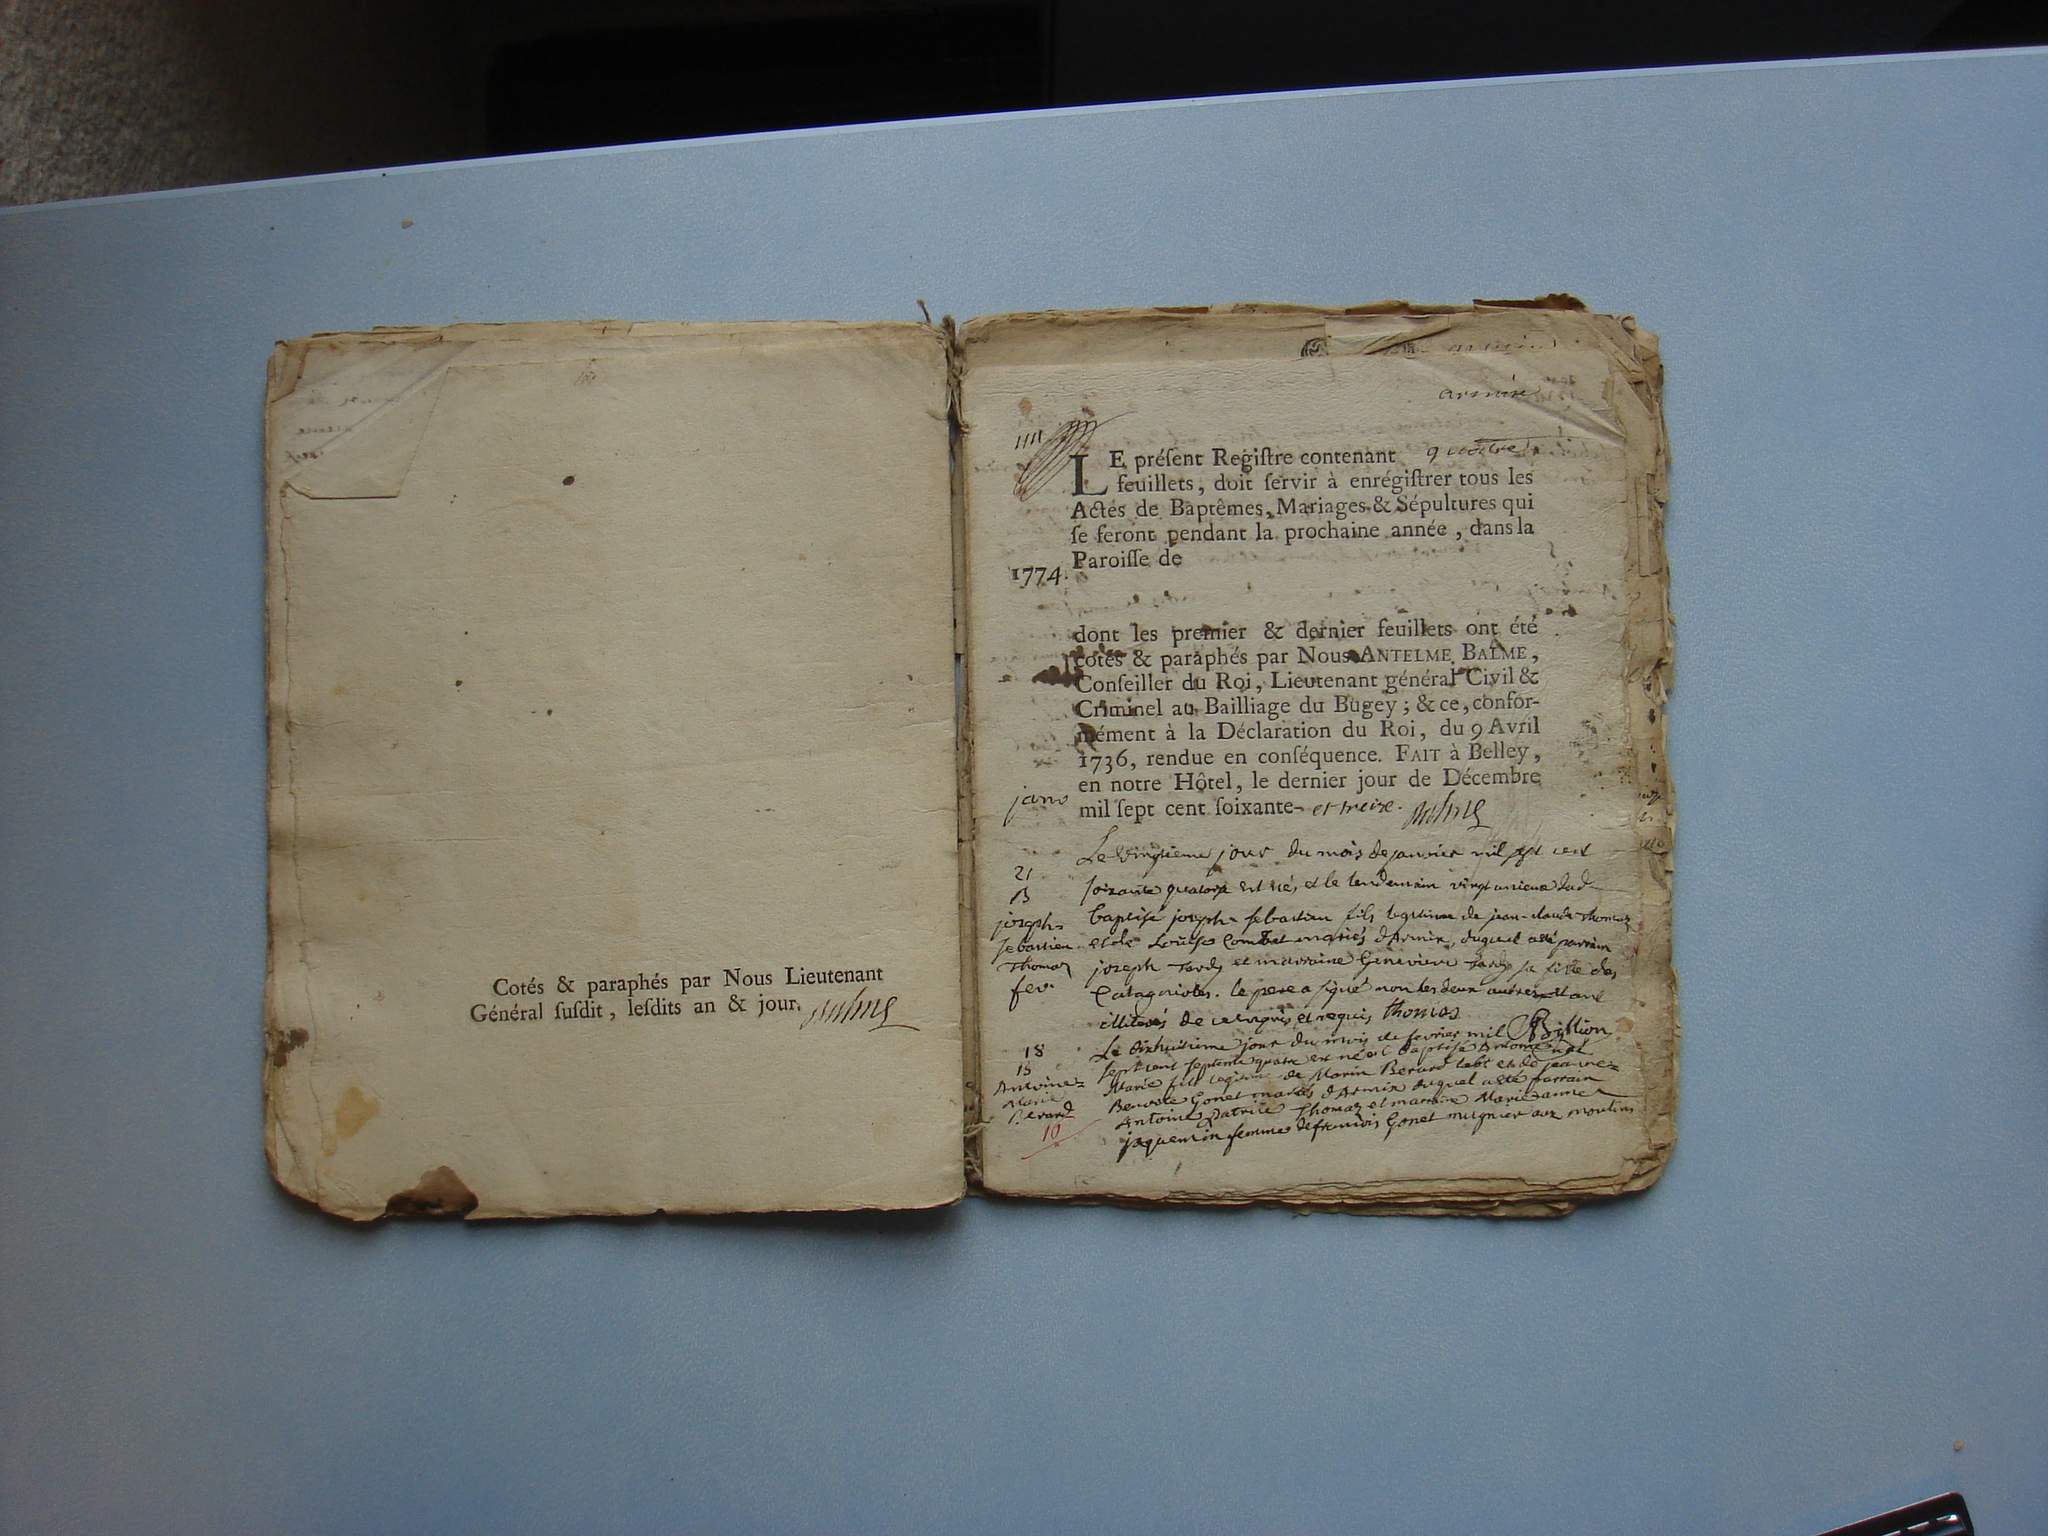 Cotés & paraphés par Nous Lieutenant
Général ſuſdit, leſdits an & jour. Balme
armix
IIII
LE préſent Regiſtre contenant quatre
feuillets, doit ſervir à enrégiſtrer tous les
Actes de Baptêmes, Mariages & Sépultures qui
ſe feront pendant la prochaine année, dans la
1774. Paroiſſe de
dont les premier & dernier feuillets ont été
cotés & paraphés par Nous ANTELME BALME,
Conſeiller du Roi, Lieutenant général Civil &
Criminel au Bailliage du Bugey; & ce, confor-
mément à la Déclaration du Roi, du 9 Avril
1736, rendue en conſéquence. FAIT à Belley,
en notre Hôtel, le dernier jour de Décembre
mil ſept cent ſoixante-et treize. Balme
janv
Le vingtieme jour du mois de janvier mil sept cent
21
soixante quatorze est né, et le lendemain vingt unieme dud
B
joseph-
baptisé joseph-sebastien fils legitime de jean-claude thomaz
sebastien
et de Louise Combet mariés d'armix, duquel a été parrain
Thomaz
joseph Tardy et marraine Genevieve Tardy sa fille des
fev.
Catagnioles. le pere a signé non les deux autres étant
illiterés de ce enquis et requis thomas
Billion
18
Le dixhuitieme jour du mois de fevrier mil
B
sept cent septante quatre est né et baptisé Antoine
Antoine-
Marie fils legitime de Marin Berard labr et de jeanne-
Marie
Benoite Gonet mariés d'Armix duquel a été parrain
Berard
Antoine Patrice Thomaz et marraine Marie-anne
10
jaquemin femme de françois Gonet mugnier aux moulins